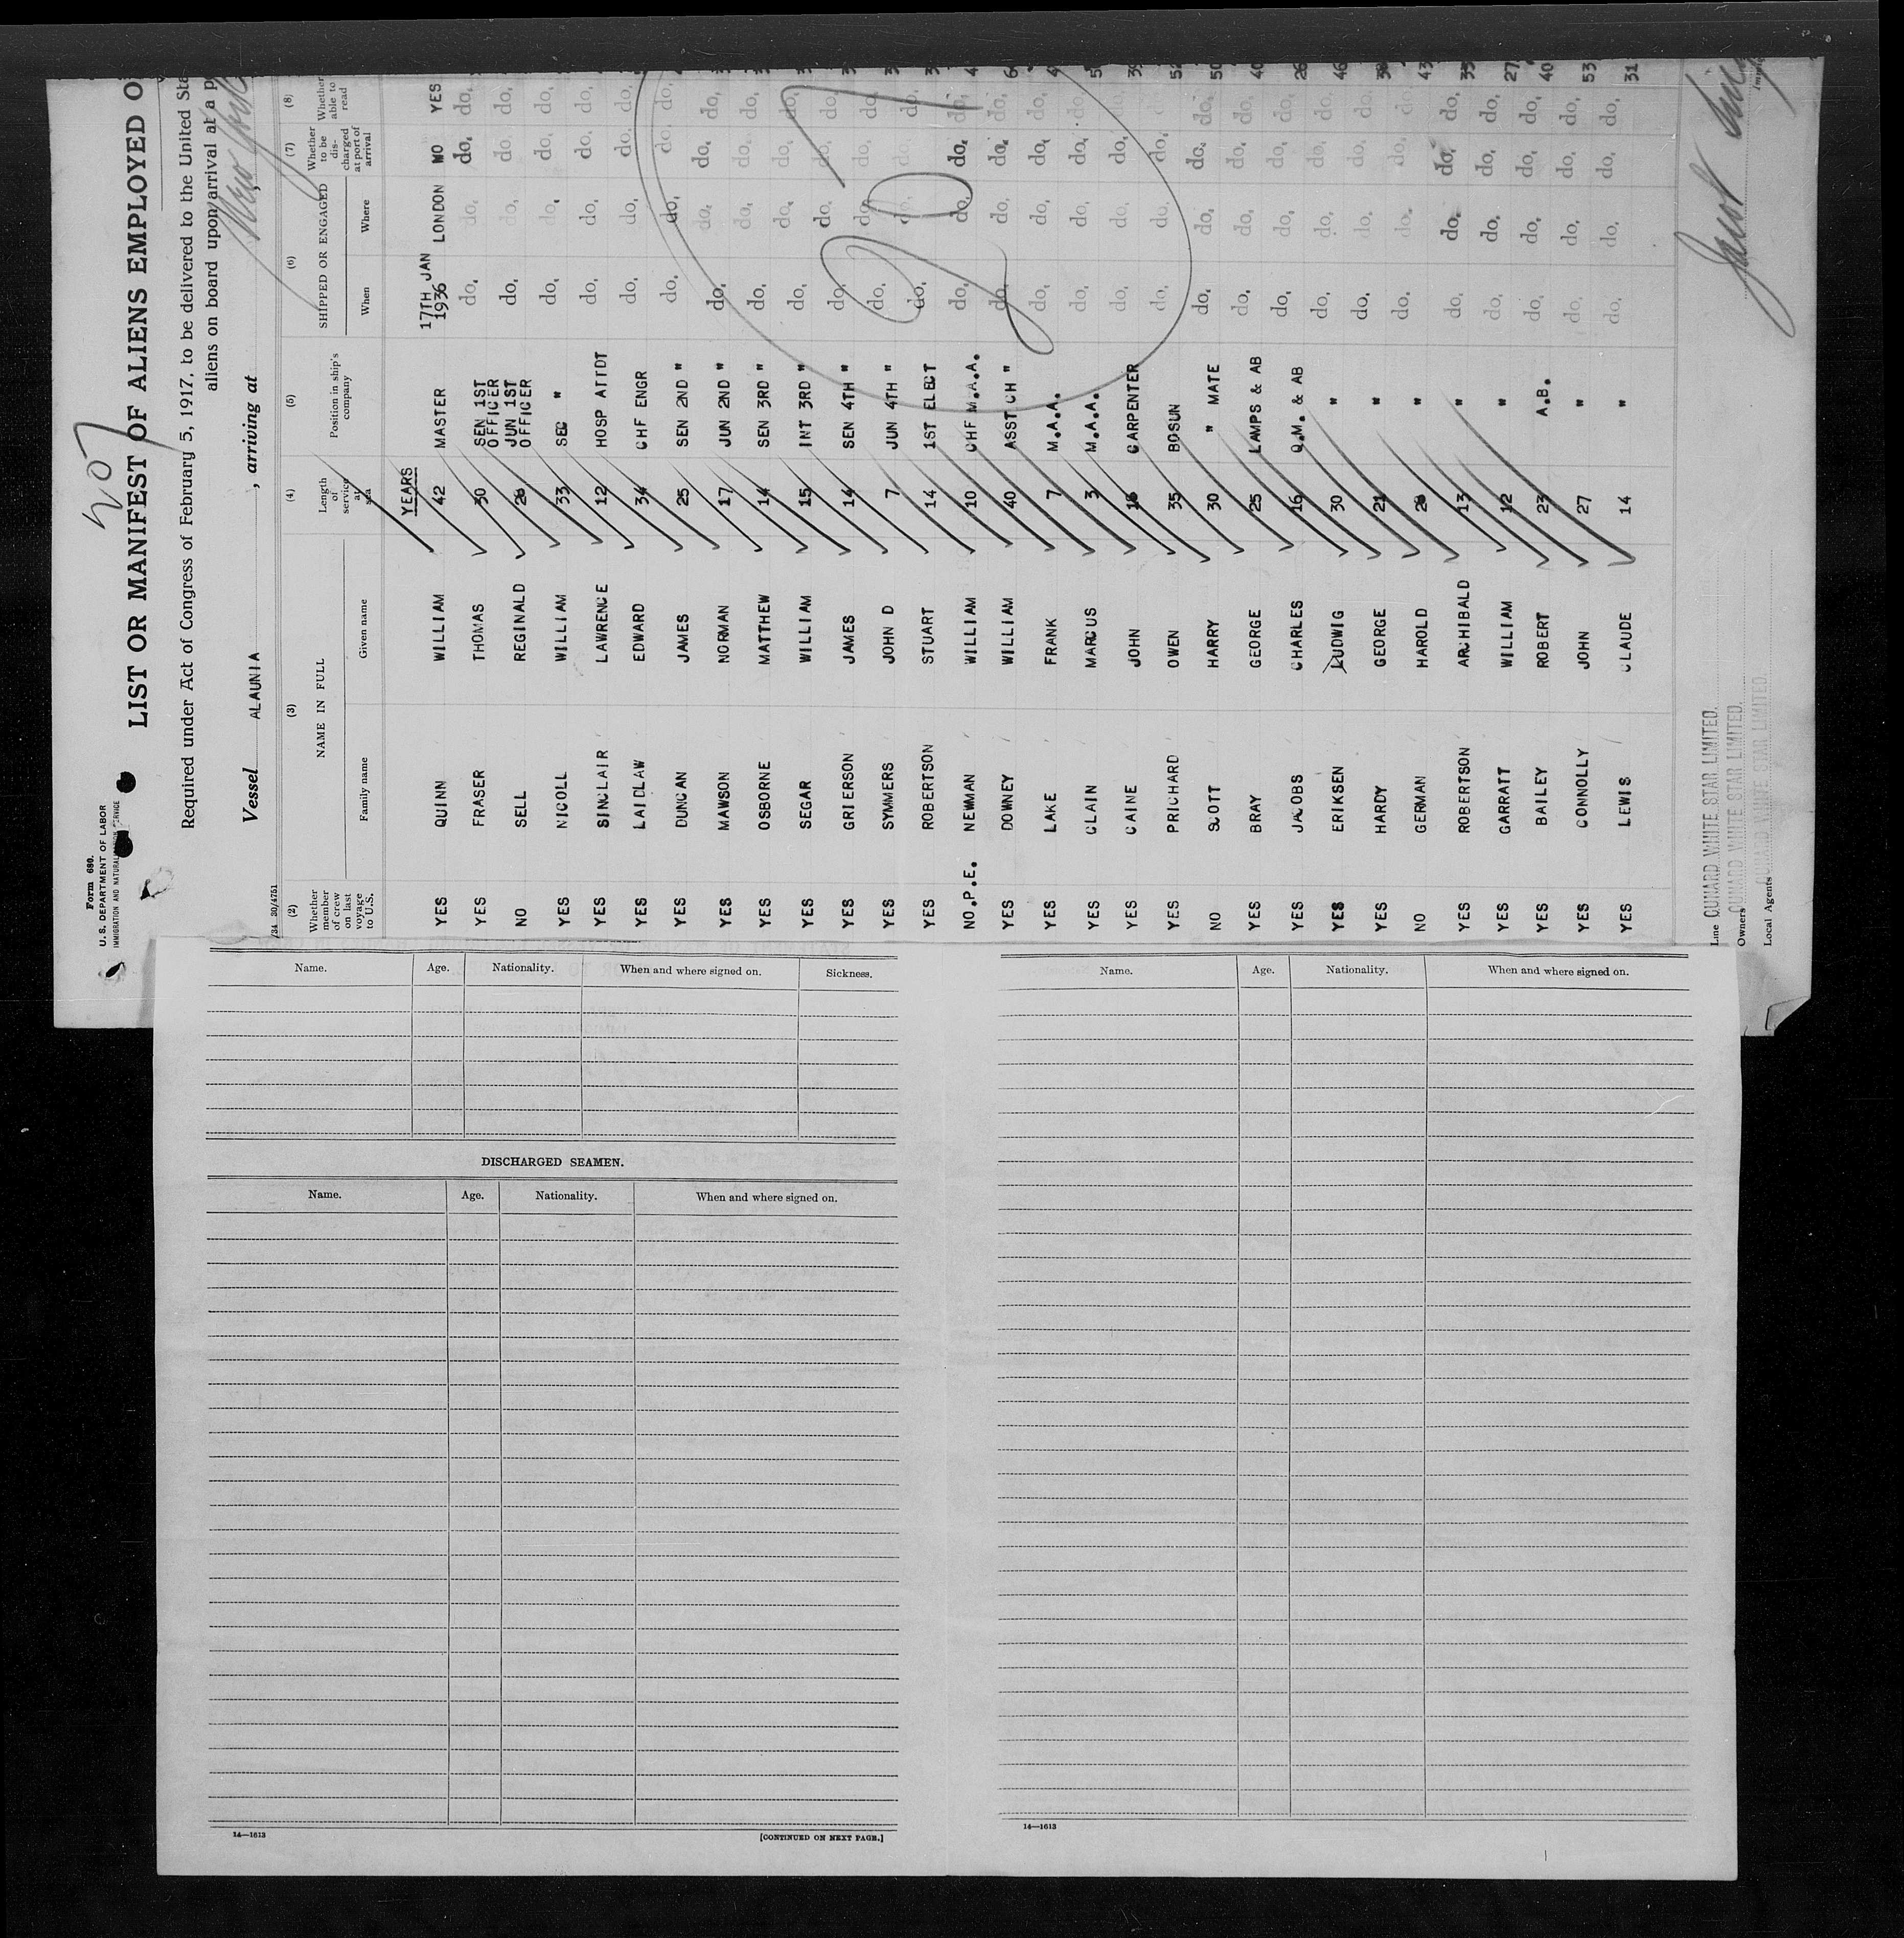 207
Form 680.
U. S. DEPARTMENT OF LABOR
IMMIGRATION AND NATURALIZATION SERVICE
LIST OR MANIFEST OF ALIENS EMPLOYED O
Required under Act of Congress of February 5, 1917, to be delivered to the United Sta
aliens on board upon arrival at a p
Vessel ALAUNIA, arriving at New York
/34 30/4751
(2) (3) (4) (5) (6) (7) (8)
Whether member of crew on last voyage to U.S. NAME IN FULL Length of service at sea Position in ship's company SHIPPED OR ENGAGED Whether to be discharged at port of arrival Whether able to read
Family name Given name When Where
YEARS
YES QUINN WILLIAM 42 MASTER 17TH JAN 1936 LONDON NO YES
YES FRASER THOMAS 30 SEN 1ST OFFICER do. do. do. do.
NO SELL REGINALD 26 JUN 1ST OFFICER do. do. do. do.
YES NICOLL WILLIAM 33 SEC " do. do. do. do.
YES SINCLAIR LAWRENCE 12 HOSP ATTDT do. do. do. do.
YES LAIDLAW EDWARD 34 CHF ENGR do. do. do. do.
YES DUNCAN JAMES 25 SEN 2ND " do. do. do. do.
YES MAWSON NORMAN 17 JUN 2ND " do. do. do. do.
YES OSBORNE MATTHEW 14 SEN 3RD " do. do. do. do.
YES SEGAR WILLIAM 15 INT 3RD " do. do. do. do.
YES GRIERSON JAMES 14 SEN 4TH " do. do. do. do.
YES SYMMERS JOHN D 7 JUN 4TH " do. do. do. do.
YES ROBERTSON STUART 14 1ST ELECT do. do. do. do.
NO.P.E. NEWMAN WILLIAM 10 CHF M.A.A. do. do. do. do.
YES DOWNEY WILLIAM 40 ASST CH " do. do. do. do.
YES LAKE FRANK 7 M.A.A. do. do. do. do.
YES CLAIN MARCUS 3 M.A.A. do. do. do. do.
YES CAINE JOHN 16 CARPENTER do. do. do. do.
YES PRICHARD OWEN 35 BOSUN do. do. do.
NO SCOTT HARRY 30 " MATE do. do. do. do. 50
YES BRAY GEORGE 25 LAMPS & AB do. do. do. do. 40
YES JACOBS CHARLES 16 Q.M. & AB do. do. do. do. 26
YES ERIKSEN LUDWIG 30 " do. do. do. do. 46
YES HARDY GEORGE 21 " do. do. do. do. 38
NO GERMAN HAROLD 26 " do. do. do. do. 43
YES ROBERTSON ARCHIBALD 13 " do. do. do. do. 33
YES GARRATT WILLIAM 12 " do. do. do. do. 27
YES BAILEY ROBERT 23 A.B. do. do. do. do. 40
YES CONNOLLY JOHN 27 " do. do. do. do. 53
YES LEWIS CLAUDE 14 " do. do. do. do. 31
Line CUNARD WHITE STAR LIMITED.
Owners CUNARD WHITE STAR LIMITED.
Local Agents CUNARD WHITE STAR LIMITED.
Name. Age. Nationality. When and where signed on. Sickness.
DISCHARGED SEAMEN.
Name. Age. Nationality. When and where signed on.
14—1613
[CONTINUED ON NEXT PAGE.]
Name. Age. Nationality. When and where signed on.
14—1613